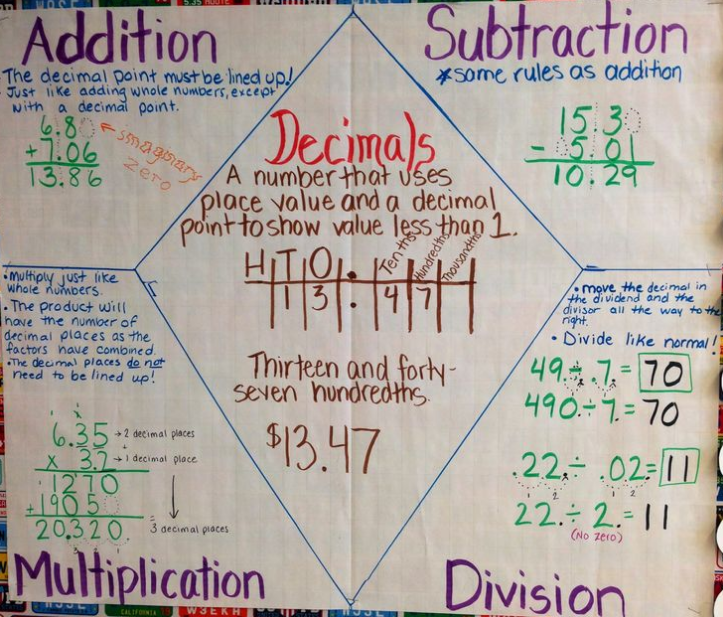 Addition
The decimal point must be lined up!
Just like adding whole numbers, except
with a decimal point.
6.8
imaginary
zero
+ 7.06
13.86
Subtraction
*same rules as addition
15.3
- 5.01
10.29
Decimals
A number that uses
place value and a decimal
point to show value less than 1.
H T O . Tenths Hundredths Thousandths
1 3 . 4 7
Thirteen and forty-
seven hundredths.
$13.47
• Multiply just like
whole numbers.
• The product will
have the number of
decimal places as the
factors have combined.
• The decimal places do not
need to be lined up!
6.35 → 2 decimal places
+
x 3.2 → 1 decimal place
1270
+ 1905
20.320.
= 3 decimal places
Multiplication
• move the decimal in
the dividend and the
divisor all the way to the
right.
• Divide like normal!
49. ÷ .7. = 70
490. ÷ 7. = 70
.22. ÷ .02. = 11
1 2 1 2
22. ÷ 2. = 11
(No zero)
Division
CALIFORNIA
W3EKH